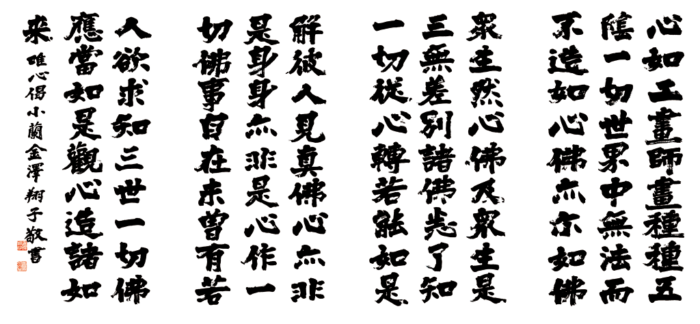 心如工畫師畫種種五
陰一切世界中無法而
不造如心佛亦尓如佛
衆生然心佛及衆生是
三無差別諸佛悉了知
一切從心轉若能如是
解彼人見真佛心亦非
是身身亦非是心作一
切佛事自在未曾有若
人欲求知三世一切佛
應當如是觀心造諸如
来 唯心偈小蘭金澤翔子敬書